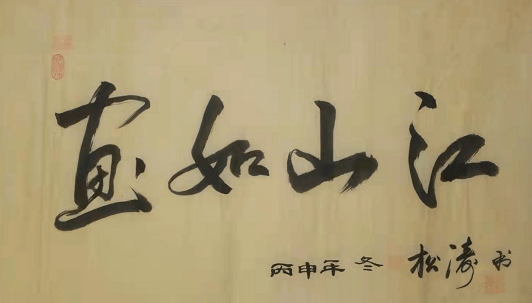 江山如画
丙申年冬 松涛书